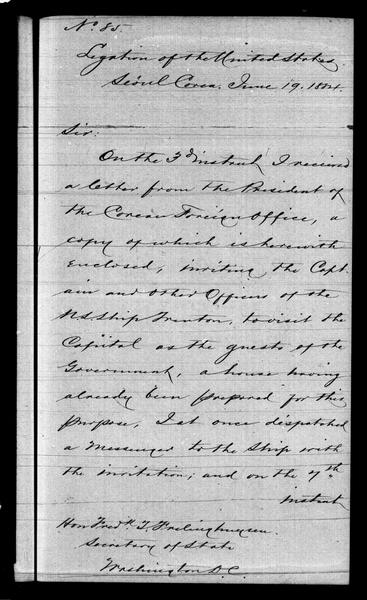 No. 85.
Legation of the United States.
Séoul Corea. June 19. 1884.
Sir:
On the 3d instant I received
a letter from the President of
the Corean Foreign Office, a
copy of which is herewith
enclosed, inviting the Capt-
ain and other Officers of the
U.S. Ship Trenton, to visit the
Capital as the guests of the
Government, a house having
already been prepared for this
purpose, I at once dispatched
a Messenger to the Ship with
the invitation; and on the 7th
instant
Hon Fredk. T. Frelinghuysen.
Secretary of State
Washington D.C.